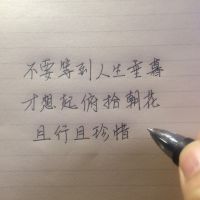 不要等到人生垂暮
才想起俯拾朝花
且行且珍惜